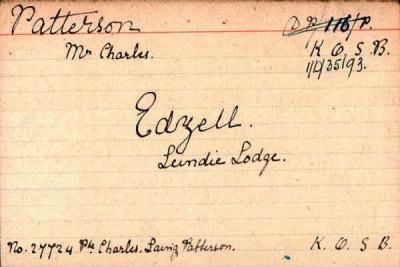 Patterson D P. 116/P.
Mr Charles. K. O. S. B.
1/L/35/93.
Edzell.
Lundie Lodge.
No. 27724 Pte Charles. Laing Patterson. K. O. S B.